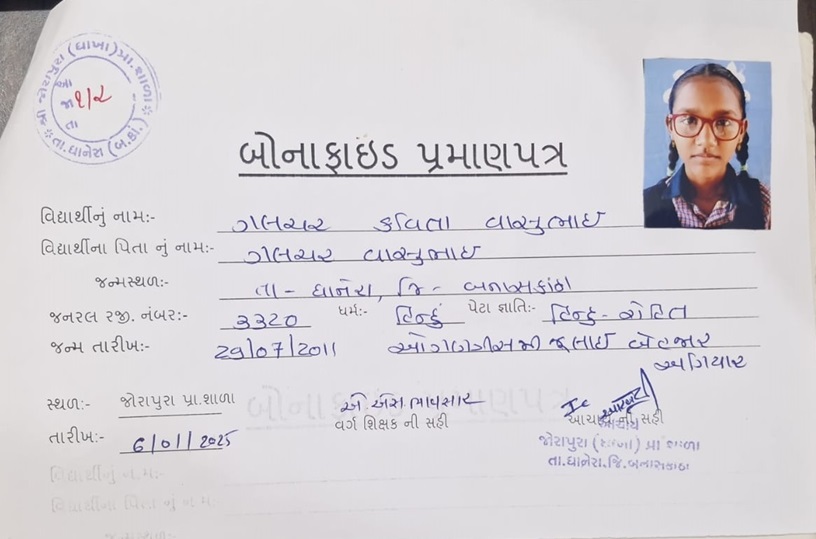 શ્રી જોરાપુરા (ધાખા) પ્રા.શાળા
તા.ધાનેરા (બ.કાં.)
બોનાફાઇડ પ્રમાણપત્ર
વિદ્યાર્થીનું નામ:- ગલચર કવિતા વાસુભાઇ
વિદ્યાર્થીના પિતા નું નામ:- ગલચર વાસુભાઇ
જન્મસ્થળ:- તા - ધાનેરા, જિ - બનાસકાંઠા
જનરલ રજી. નંબર:- ૩૩૨૦ ધર્મ:- હિન્દું પેટા જ્ઞાતિ:- હિન્દુ - રોહિત
જન્મ તારીખ:- 29/07/2011 ઓગણત્રીસમી જુલાઇ બેહજાર
અગિયાર
સ્થળ:- જોરાપુરા પ્રા.શાળા
એ.એસ ભાવસાર
વર્ગ શિક્ષક ની સહી
આચાર્ય ની સહી
તારીખ:- 6/01/2025
આચાર્ય
જોરાપુરા (ધાખા) પ્રા શાળા
તા.ધાનેરા.જિ.બનાસકાંઠા
વિદ્યાર્થીનું નામ:-
વિદ્યાર્થીના પિતા નું નામ